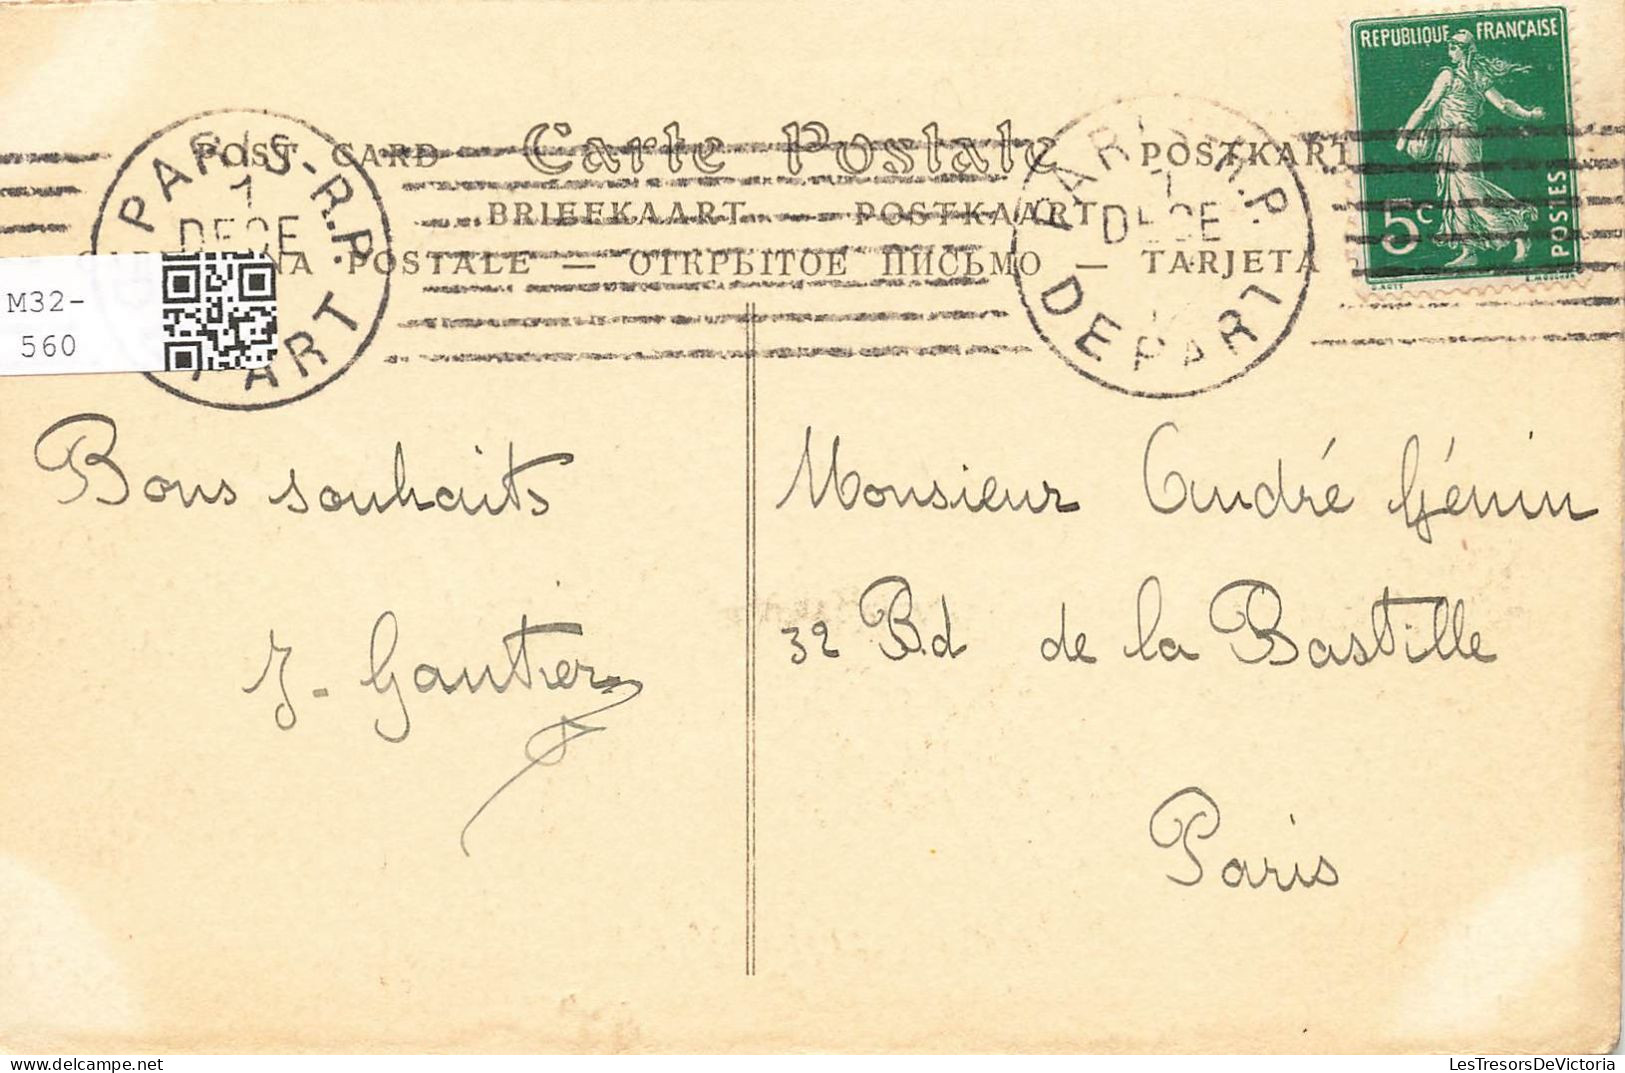 REPUBLIQUE FRANÇAISE
5c POSTES
POST CARD Carte Postale POSTKART
BRIEFKAART — POSTKAART
POSTALE — ОТКРЫТОЕ ПИСЬМО — TARJETA
PARIS-R.P.
1
DECE
DEPART
M32-
560
Bons souhaits
J. Gautier
Monsieur André Génin
32 Bd de la Bastille
Paris
LesTresorsDeVictoria